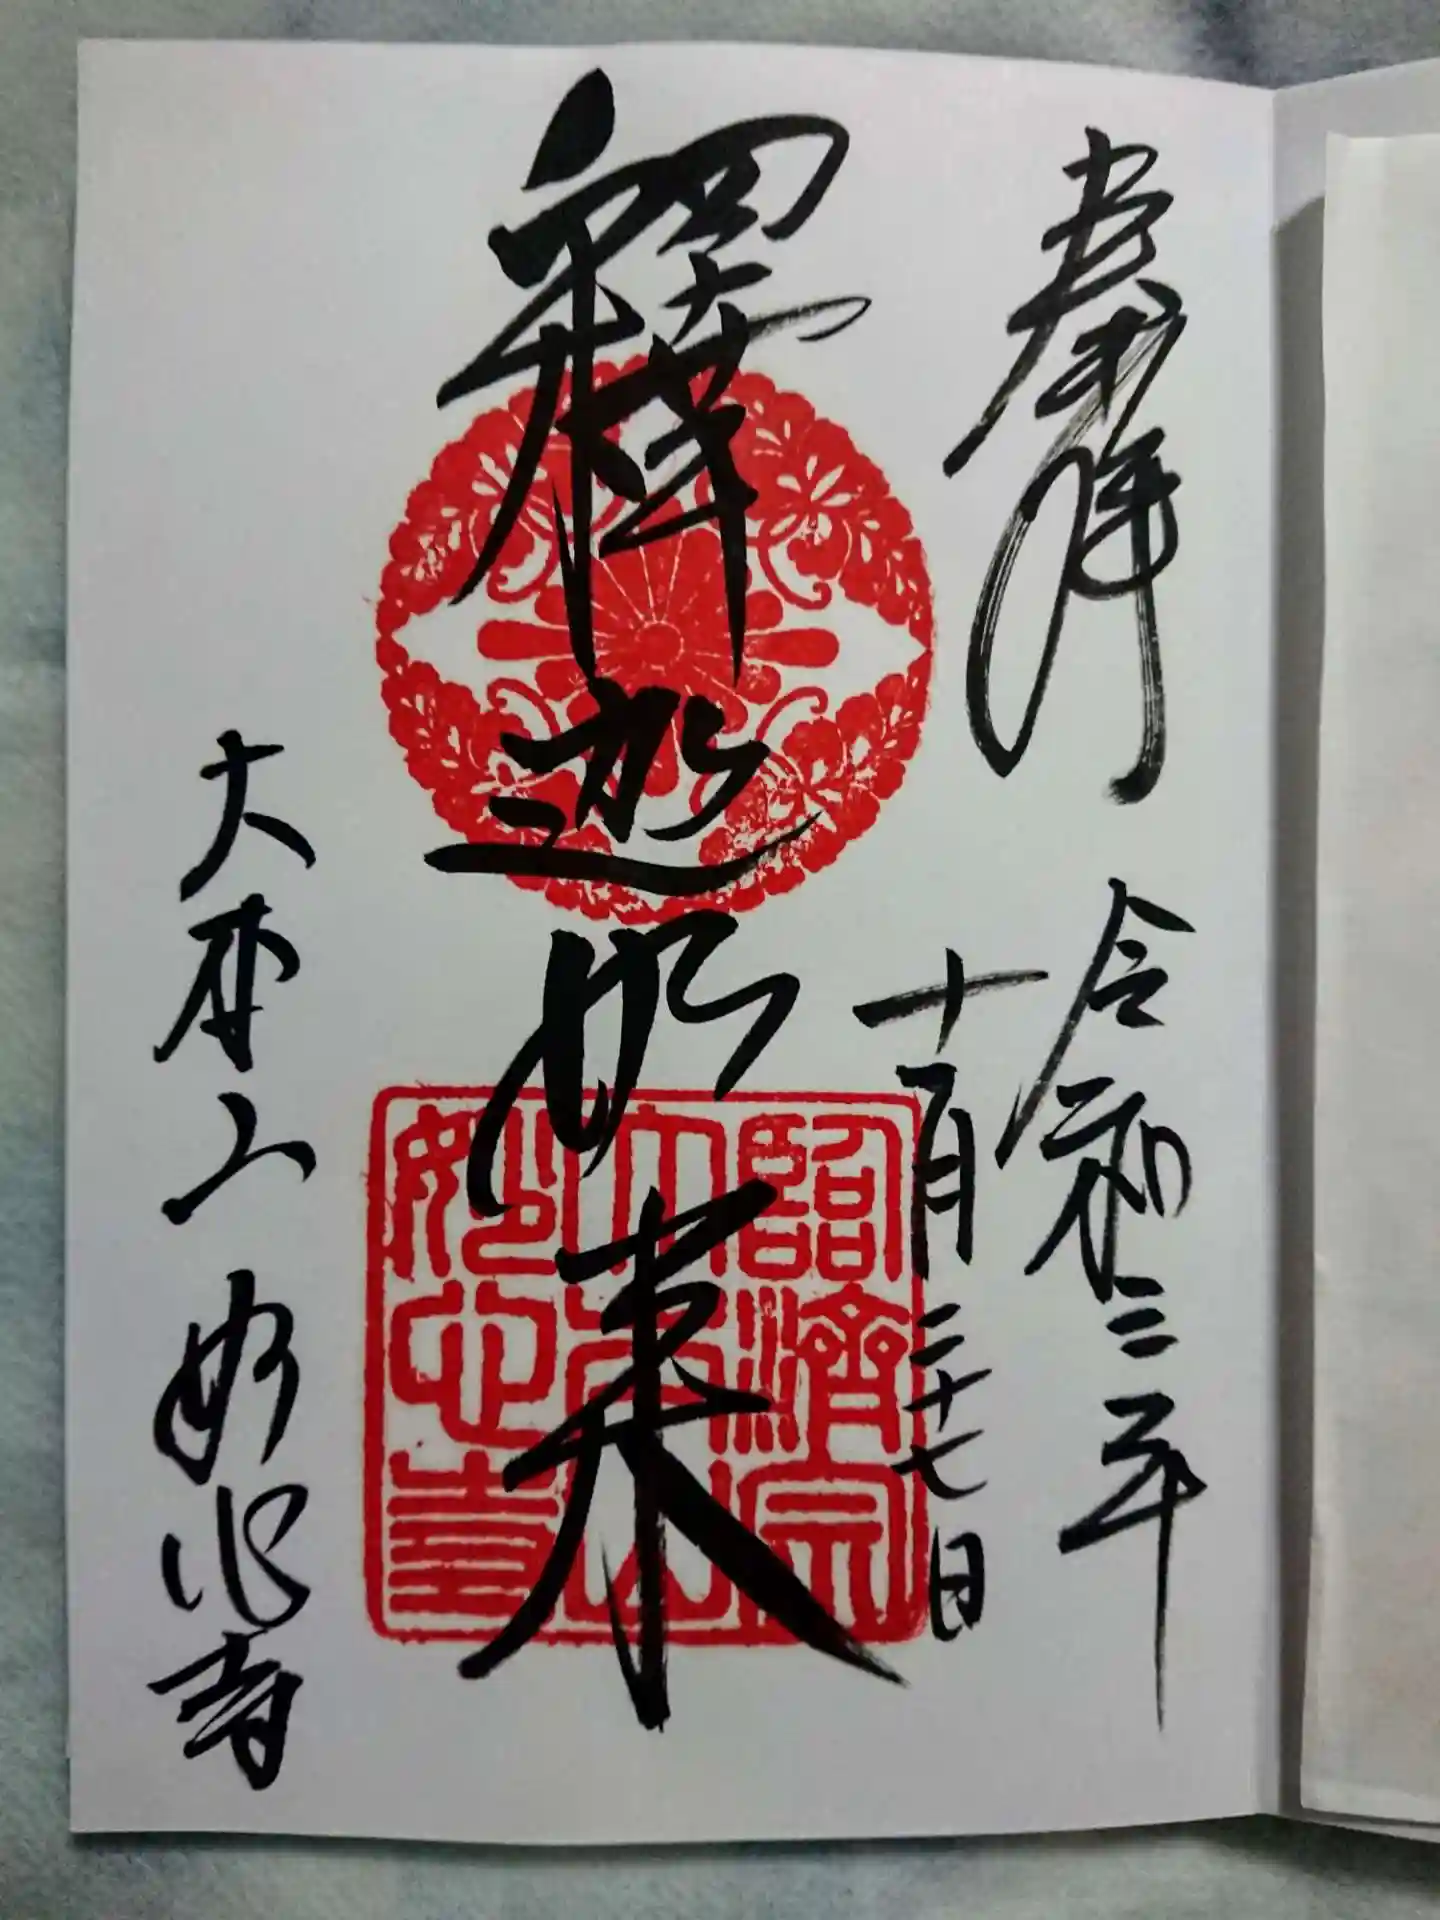 奉拝
令和三年
十月二十七日
釋迦如来
臨濟宗
大本山
妙心寺
大本山 妙心寺